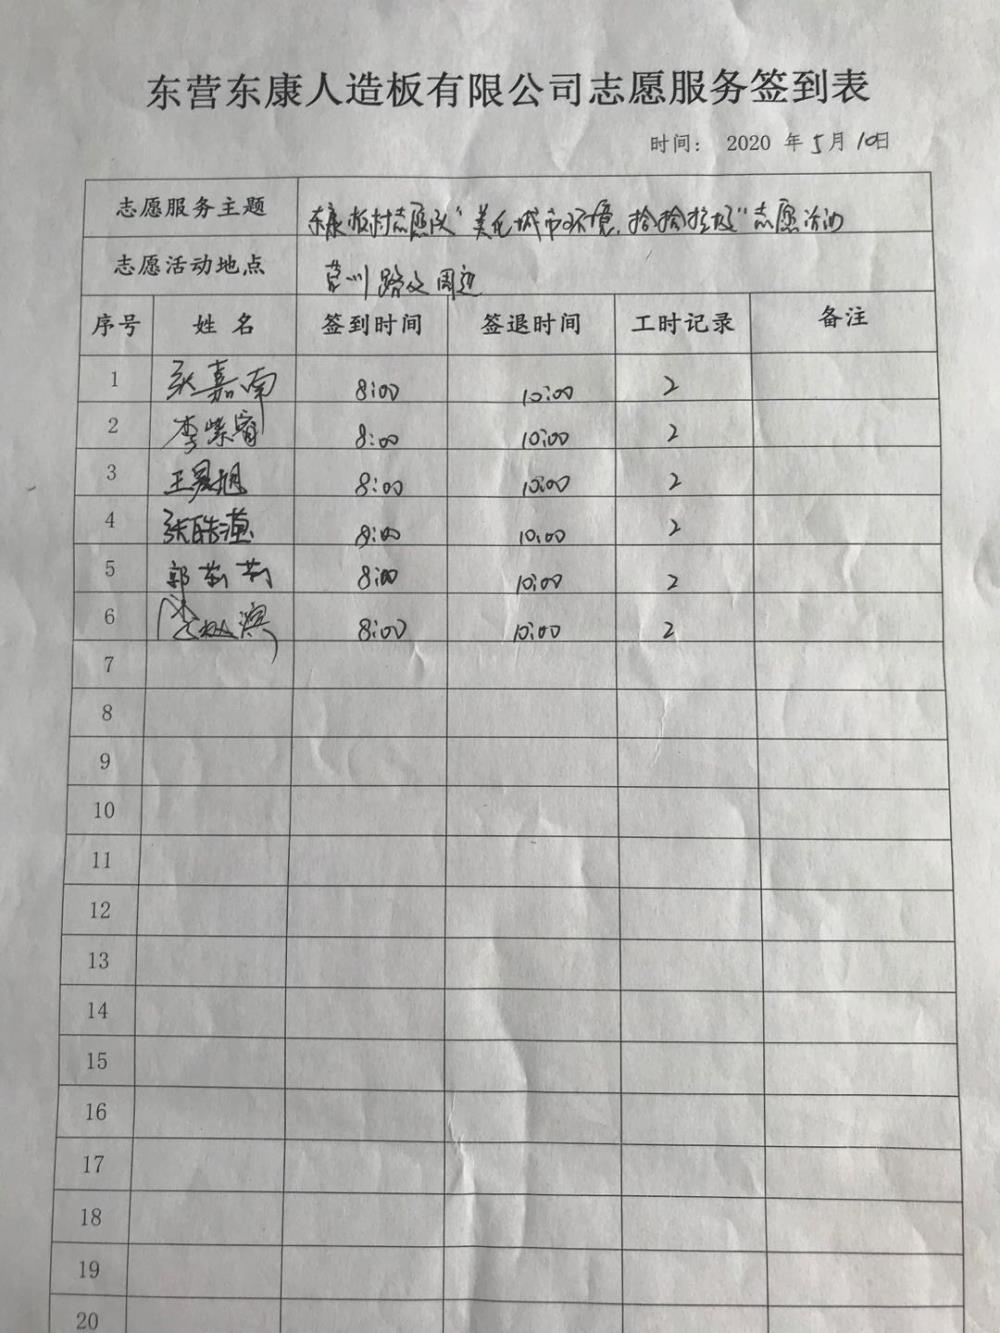 东营东康人造板有限公司志愿服务签到表
时间： 2020 年 5 月 10日
志愿服务主题 东康板材志愿队“美化城市环境，捡捡垃圾”志愿活动
志愿活动地点 莒州路及周边
序号 姓 名 签到时间 签退时间 工时记录 备注
1 张嘉南 8:00 10:00 2
2 李紫睿 8:00 10:00 2
3 王晨旭 8:00 10:00 2
4 张皓 8:00 10:00 2
5 郭莉莉 8:00 10:00 2
6 8:00 10:00 2
7
8
9
10
11
12
13
14
15
16
17
18
19
20